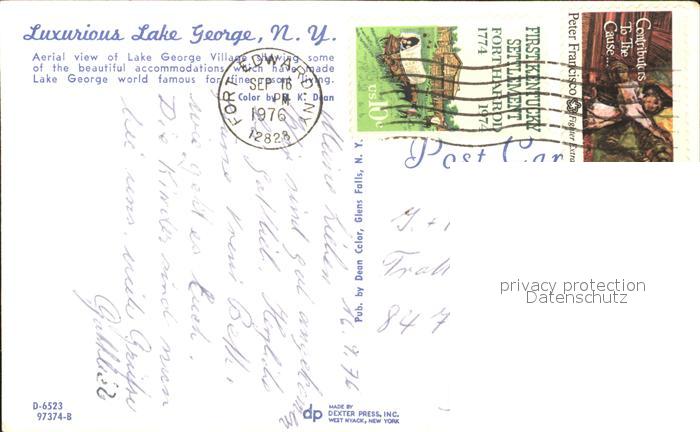 Luxurious Lake George, N. Y.
Aerial view of Lake George Village showing some
of the beautiful accommodations which have made
Lake George world famous for fine resort living.
Color by M. K. Dean
FORT EDWARD NY
SEP 16
PM
1976
12828
FIRST KENTUCKY
SETTLEMENT
FORT HARROD
1774 1974
US 10c
Contributors
To The
Cause...
Peter Francisco Fighter Extra
Post Car
Pub. by Dean Color, Glens Falls, N. Y.
16. 9. 76
Meine Lieben
sind gut
Vreni Beth,
wie geht es Euch.
Die Kinder sind nun
bei uns, viele Grüsse
847
privacy protection
Datenschutz
D-6523
97374-B
dp MADE BY
DEXTER PRESS, INC.
WEST NYACK, NEW YORK